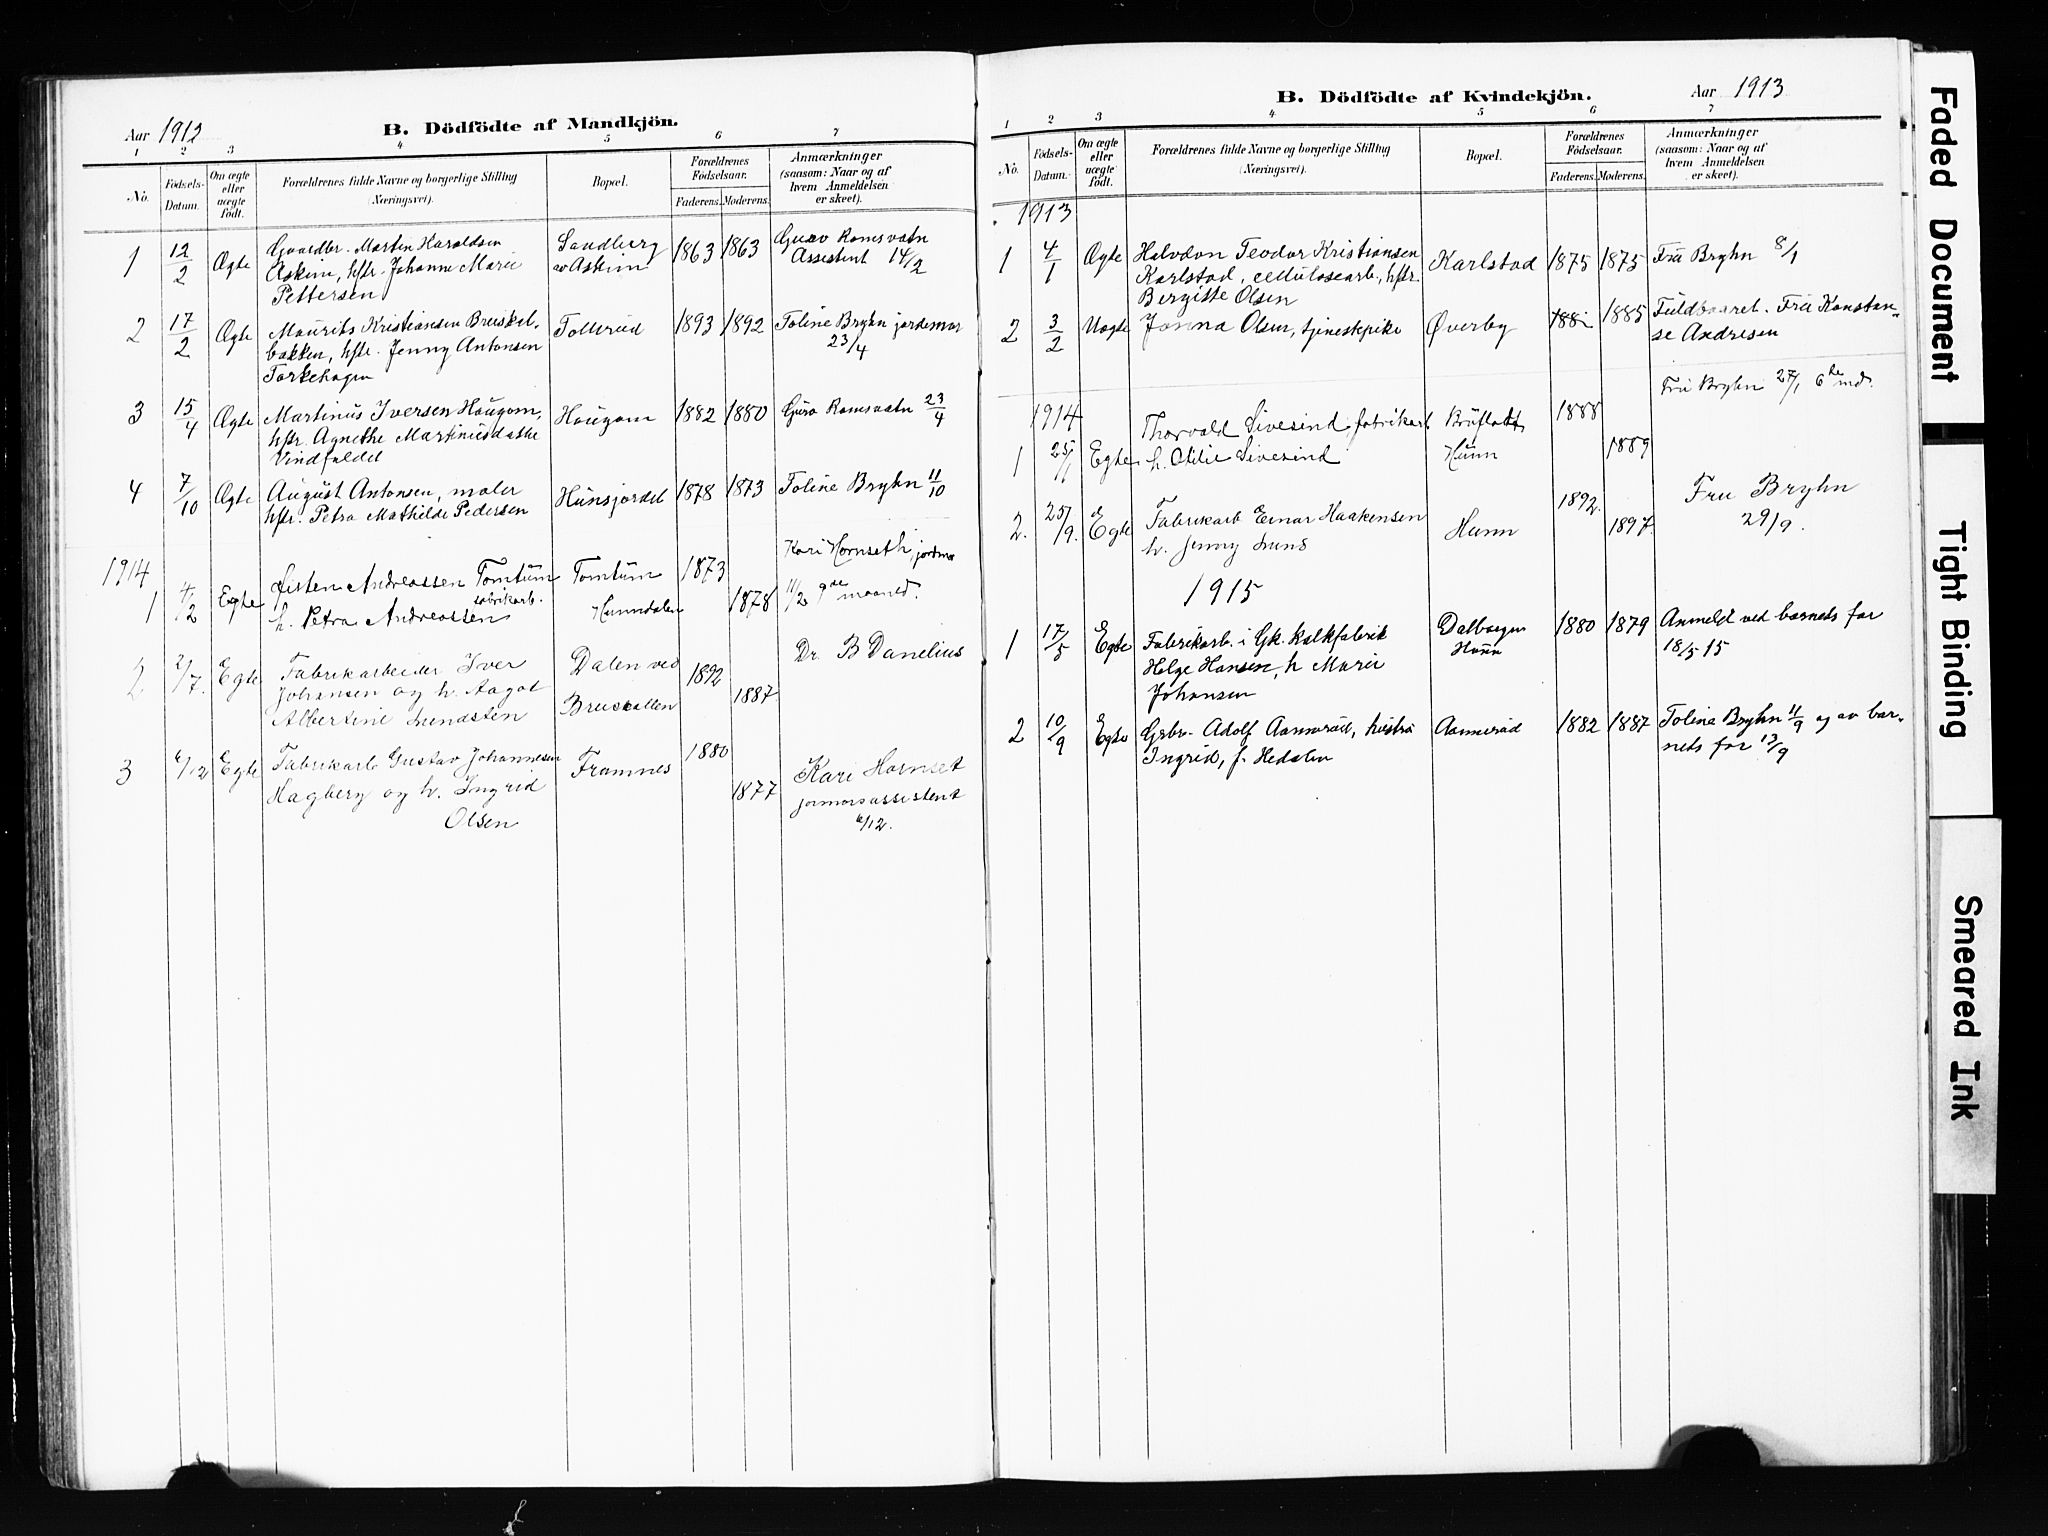 Aar 1912
B. Dödfödte af Mandkjön.
1 2 3 4 5 6 7
No.
Födsels-
Datum.
Om ægte
eller
uægte
födt.
Forældrenes fulde Navne og borgerlige Stilling
(Næringsvei).
Bopæl.
Forældrenes
Födselsaar.
Faderens.
Moderens.
Anmærkninger
(saasom: Naar og af
hvem Anmeldelsen
er skeet).
1 12/2 Ægte Gaardbr. Martin Haraldsen
Askim, hstr. Johanne Marie
Pettersen
Sandberg
av Askim
1863 1863 Guro Ramsvatn
Assistent 14/2
2 17/2 Ægte Maurits Kristiansen Bruskel-
bakken, hstr. Jenny Antonsen
Torkehagen
Tollerud 1893 1892 Toline Bryhn jordemor
23/4
3 15/4 Ægte Martinus Iversen Haugom,
hstr. Agnethe Martinusdatter
Vindfaldet
Haugom 1882 1880 Guro Ramsvatn 23/4
4 7/10 Ægte August Antonsen, maler
hstr. Petra Mathilde Pedersen
Hunsjordet 1878 1873 Toline Bryhn 11/10
1914
1 4/2 Egte Østen Andreassen Tomtum
fabrikarb.
h. Petra Andreassen
Tomtum
Hunndalen
1873
1878
Kari Hornseth, jordmo
11/2 9de maaned.
2 2/7. Egte Fabrikarbeider Iver
Johansen og h. Aagot
Albertine Lundsten
Dalen ved
Bruskallen
1892
1887.
Dr. B Danelius
3 6/12 Egte Fabrikarb Gustav Johannesen
Hagberg og h. Ingrid
Olsen
Framnes
1880
1877
Kari Hornset
jormorassistent
6/12.
B. Dödfödte af Kvindekjön.
Aar 1913
1 2 3 4 5 6 7
No.
Födsels-
Datum.
Om ægte
eller
uægte
födt.
Forældrenes fulde Navne og borgerlige Stilling
(Næringsvei).
Bopæl.
Forældrenes
Födselsaar.
Faderens.
Moderens.
Anmærkninger
(saasom: Naar og af
hvem Anmeldelsen
er skeet).
1913
1 4/1 Ægte Halvdan Teodor Kristiansen
Karlstad, cellulosearb., hstr.
Birgitte Olsen
Karlstad 1875 1875 Fru Bryhn 8/1
2 3/2 Uægte Janna Olsen, tjenestpike
Øverby 1885 Fuldbaaret. Fru Konstan-
se Andresen
Fru Bryhn 27/1 6te md.
1914
1 25/1 Egte Thorvald Sivesind fabrikarb
h. Otilie Sivesind
Bruflat
Hunn
1888
1889
2. 25/9. Egte Fabrikarb Einar Haakensen
h. Jenny Lund
Hunn
1892.
1897.
Fru Bryhn
29/9.
1915
1 17/5 Egte Fabrikarb. i Gk. kalkfabrik
Helge Hansen, h Marie
Johansen
Dalhaugen
Hunn
1880 1879 Anmeld ved barnets far
18/5 15
2 10/9 Egte Grbr. Adolf Aannerud, hustru
Ingrid, f. Hedalen
Aannerud 1882 1887 Toline Bryhn 11/9 og av bar-
nets far 13/9
Faded Document
Tight Binding
Smeared Ink